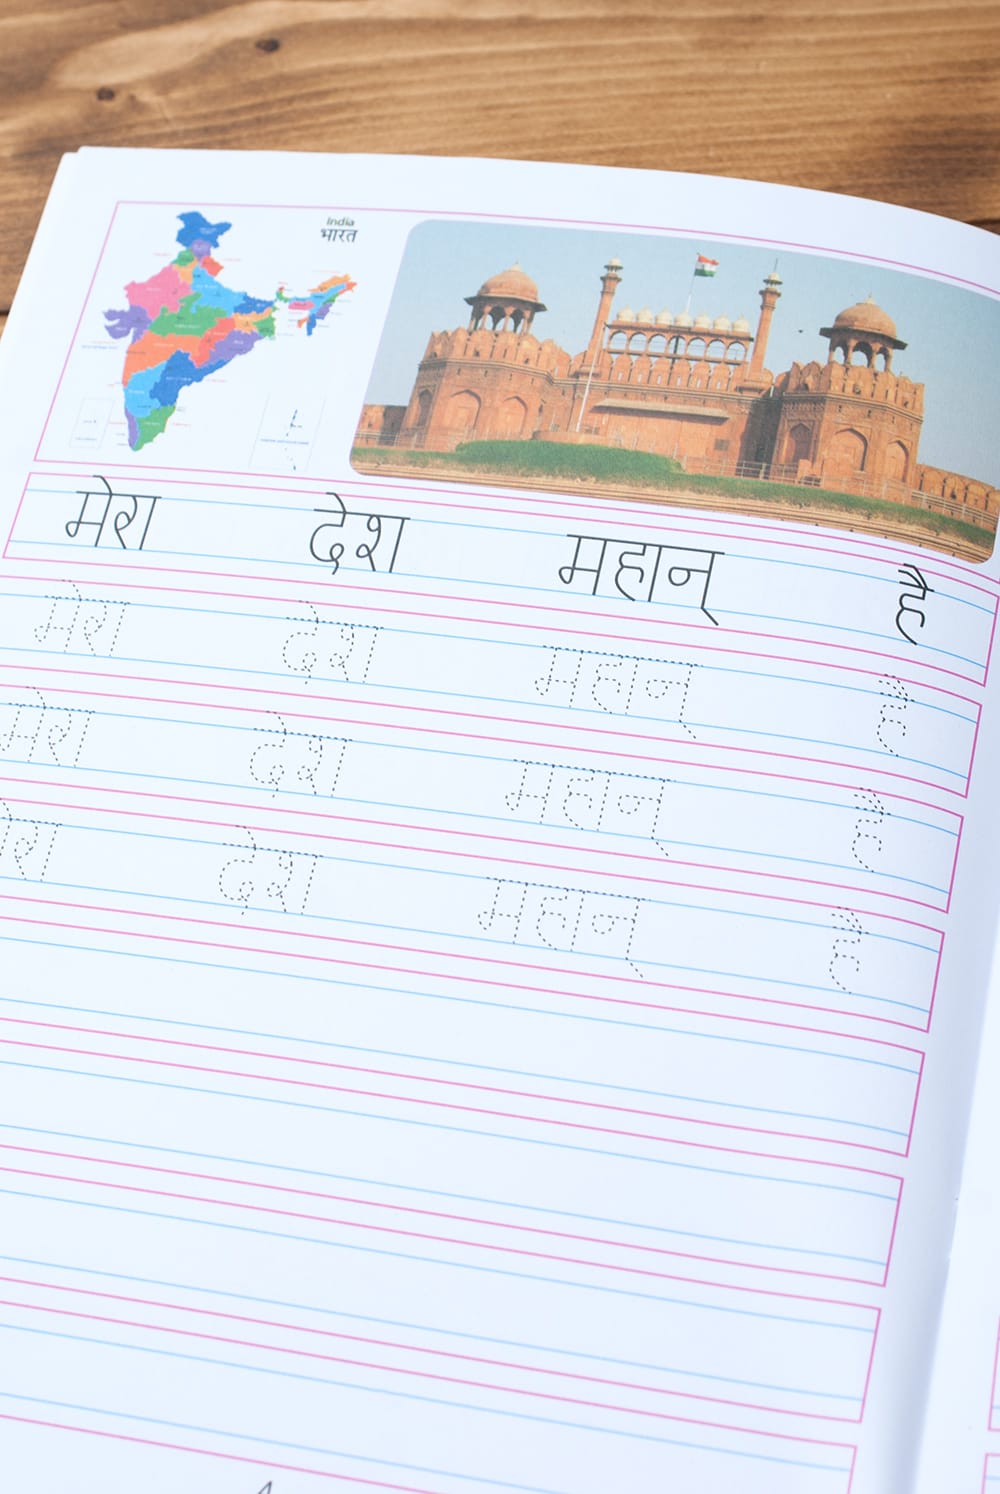 India
भारत
मेरा देश महान् है
मेरा देश महान् है
मेरा देश महान् है
मेरा देश महान् है